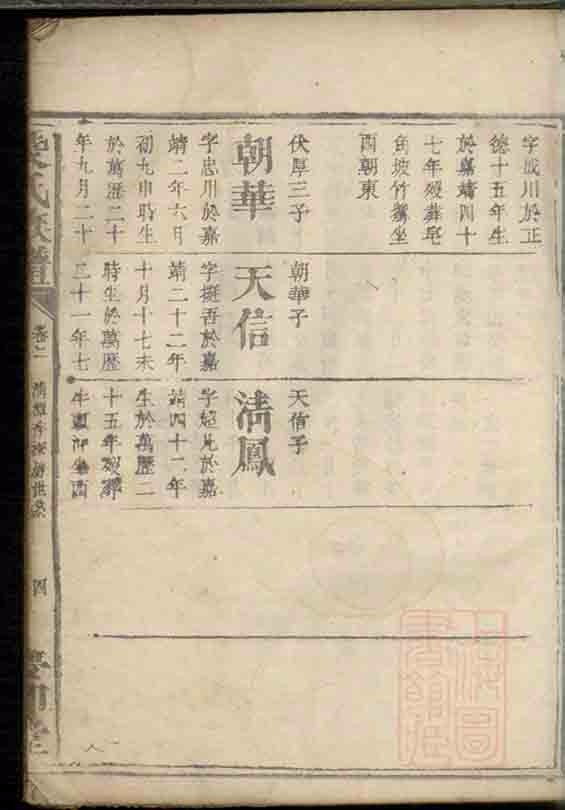 字成川於正
德十五年生
於嘉靖四十
七年歿葬屯
角坡竹鵞坐
酉朝東
伏厚三子
朝華
字忠川於嘉
靖二年六月
初九申時生
於萬歷二十
年九月二十
朝華子
天信
字挺吾於嘉
靖二十二年
十月十七未
時生於萬歷
三十一年七
天信子
清鳳
於嘉
靖四十二年
生於萬歷二
十五年歿葬
氏族譜
卷二
世系
四
堂